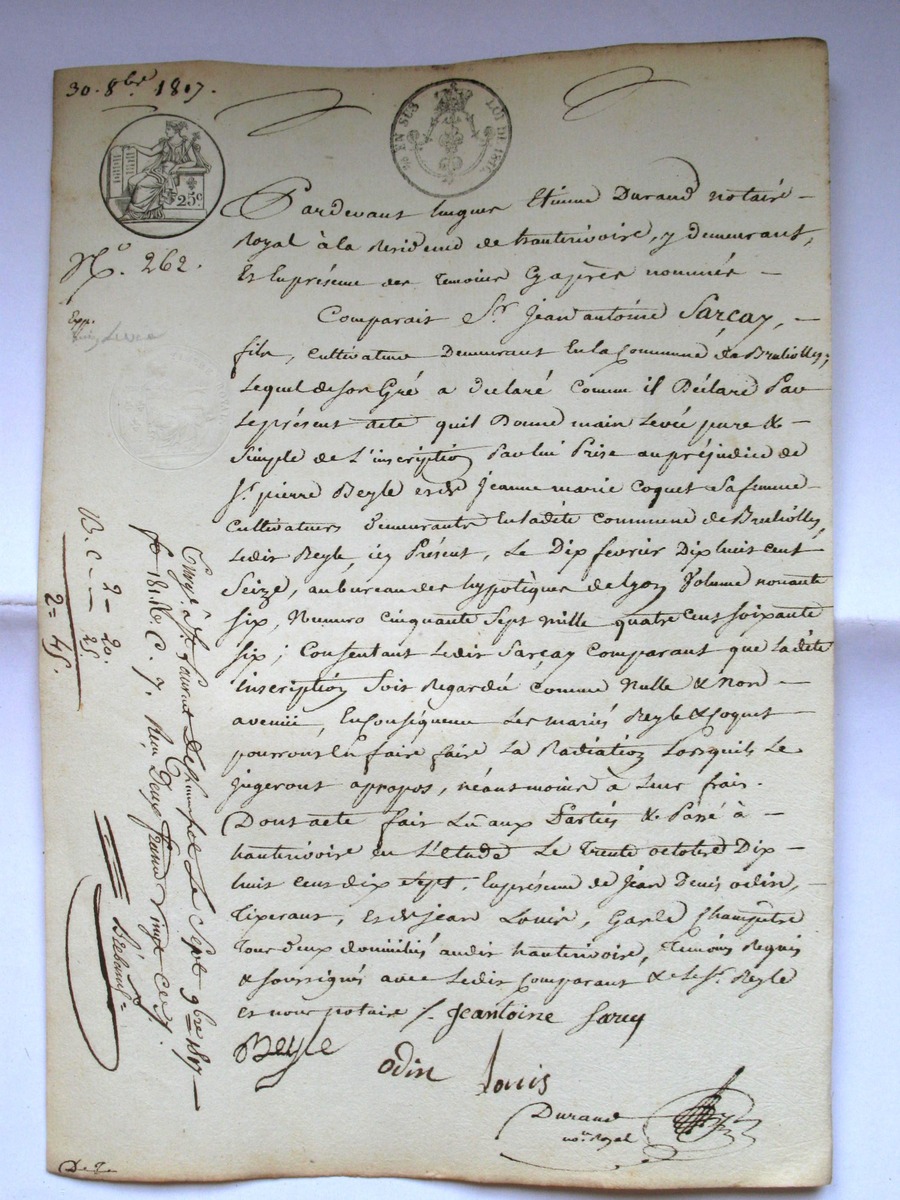 30. 8bre 1817.
EN SUS LOI DE 1816
25c
No. 262.
Exp.
Pardevant hugues Etienne Durand notaire
Royal à la Residence de hauterivoire, y Demeurant,
Et En présence des Temoins Cy après nommés
Comparait Sr. Jean antoine Sarcay,
fils, cultivateur Demeurant En la Commune de Brulioles;
Lequel de son Gré a declaré comme il Déclare Par
Le présent acte quil Donne main Levée pure &
Simple de L'inscription Par lui Prise au préjudice de
Sr. pierre Beyle et de Jeanne marie Coquet Sa femme
Cultivateurs Demeurants En Ladite commune de Brulioles,
Ledit Beyle, icy Présent, Le Dix fevrier Dix huit cent
Seize, au bureau des hypotèques de Lyon Volume nonante
six, Numero cinquante Sept mille quatre Cent soixante
six; Consentant Ledit Sarçay Comparant que Ladite
inscription Soit Regardée comme Nulle & Non
avenüe, En Conséquence Les mariés Beyle & Coquet
pourront En faire faire La Radiation Lorsquils Le
jugeront apropos, néantmoins à Leur frais.
Dont acte fait Lû aux Parties & Passé à
hauterivoire en L'etude Le Trente octobre Dix
huit cent dix sept. En présence de Jean Denis odin,
Tixerant, et de jean Louis, Garde Champêtre
Tous deux domiciliés audit hauterivoire, Temoins Requis
& soussignés avec Ledit Comparant & Le Sr. Beyle
et nous notaire /. Jeantoine Sarcy
Beyle
odin Louis
Durand
no.re Royal
Enregé à St. Laurent De Chamousset Le Sept 9bre 1817
fo 181. Vo. C. 7. Reçu Deux francs Vingt cent.
D. 2 = 20.
C 25
2 = 45.